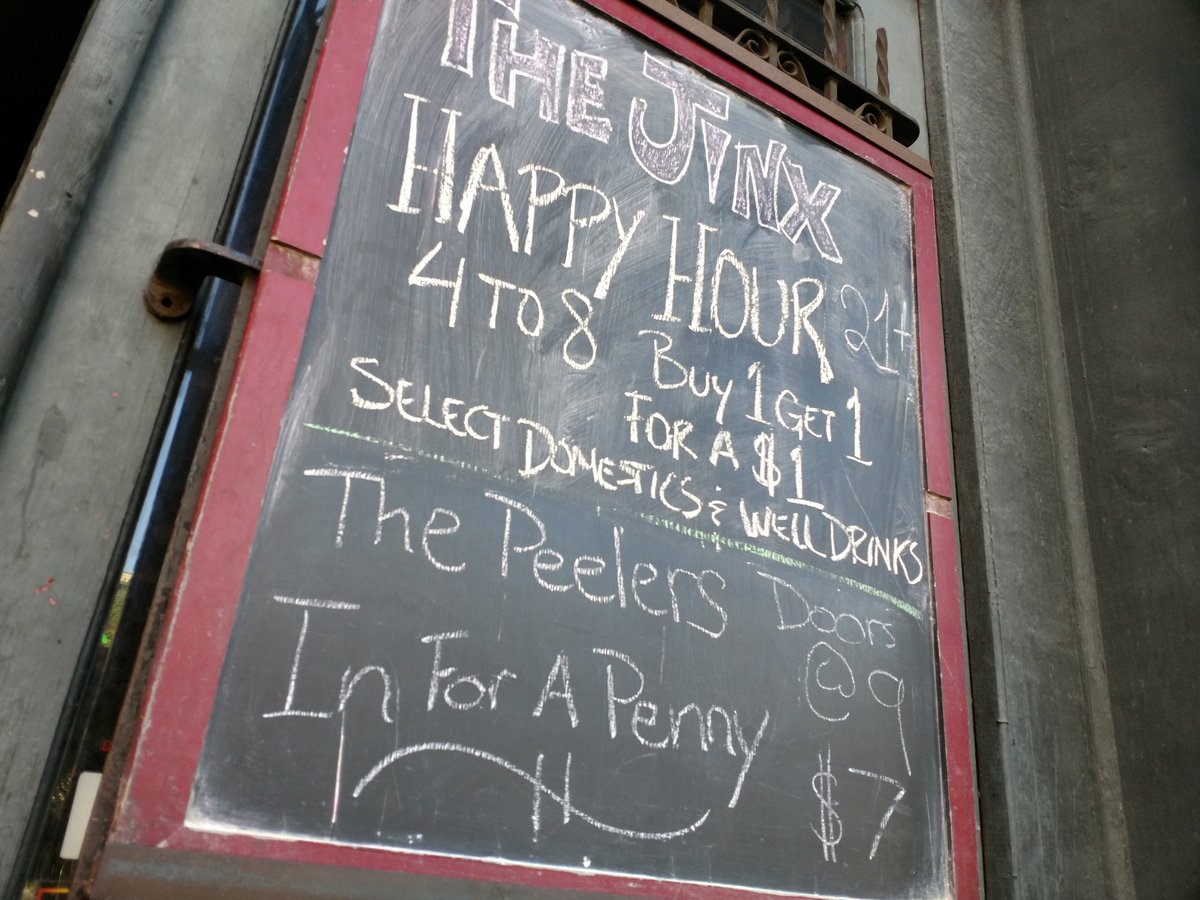 THE JINX
HAPPY HOUR 21+
4 TO 8
BUY 1 GET 1
FOR A $1
SELECT DOMESTICS & WELL DRINKS
The Peelers
Doors
@ 9
In For A Penny
$7